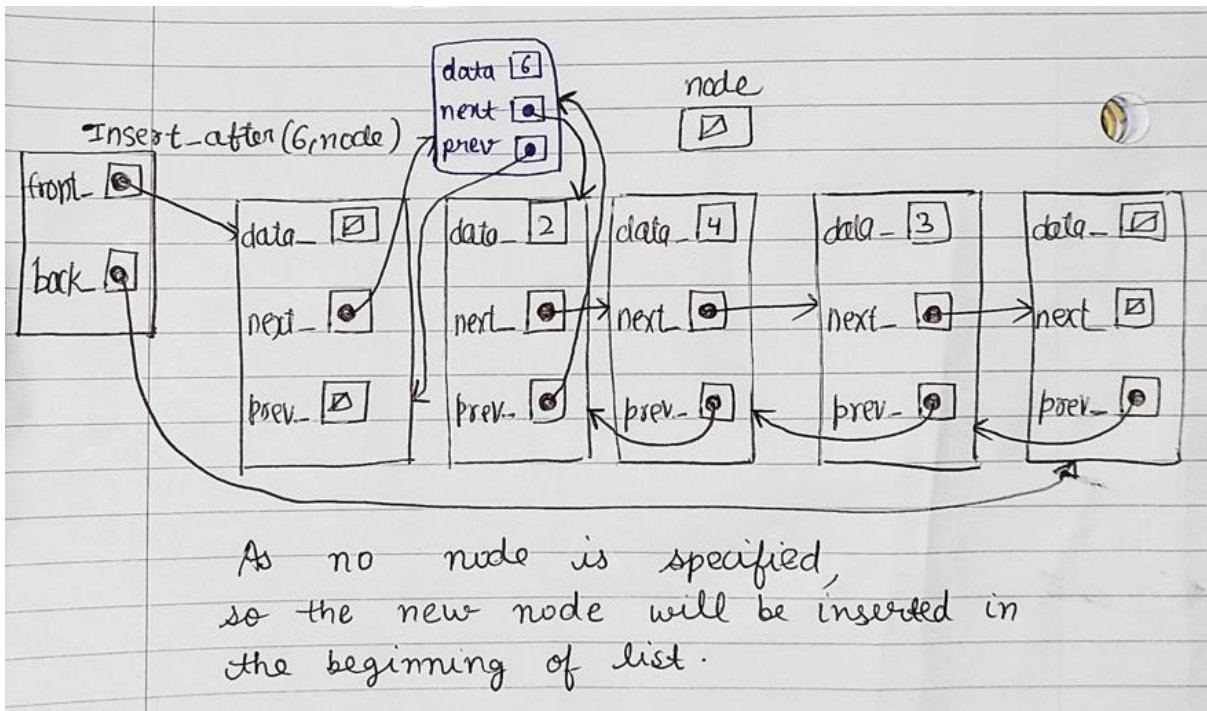 data 6
next
prev
node
Insert_after(6,node)
front_
back_
data_
next_
prev_
data_ 2
next_
prev_
data_ 4
next_
prev_
data_ 3
next_
prev_
data_
next_
prev_
As no node is specified,
so the new node will be inserted in
the beginning of list.